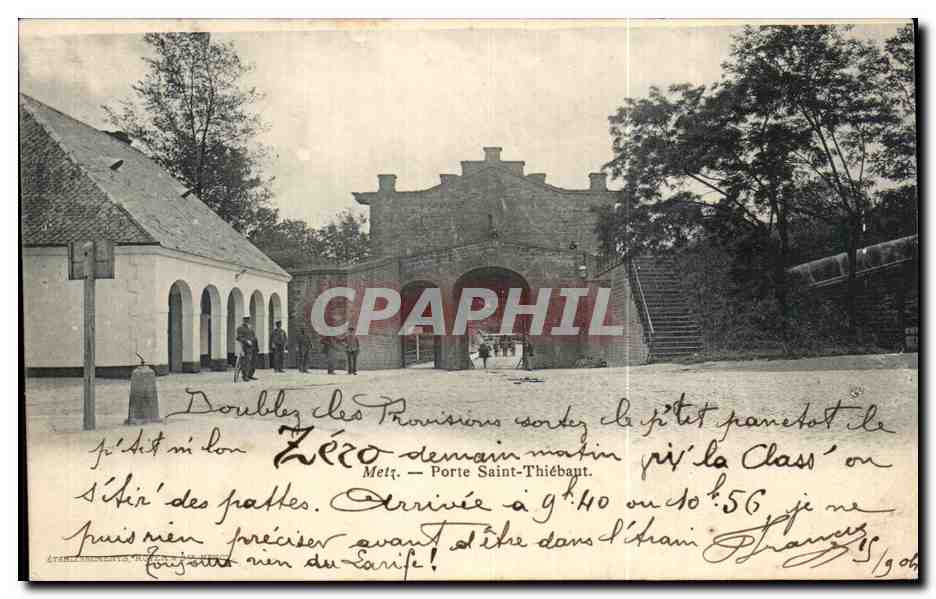 CPARPHIL
Doublez les Provisions sortez le p'tit panetot le
p'tit m'lon Zéro demain matin la Class' on
s'tir' des pattes. Arrivée à 9h40 ou 10h.56 je ne
puis rien préciser avant d'être dans l'train Francis
Toujours rien du Larife! 15/904
Metz. — Porte Saint-Thiébaut.
ÉTABLISSEMENTS